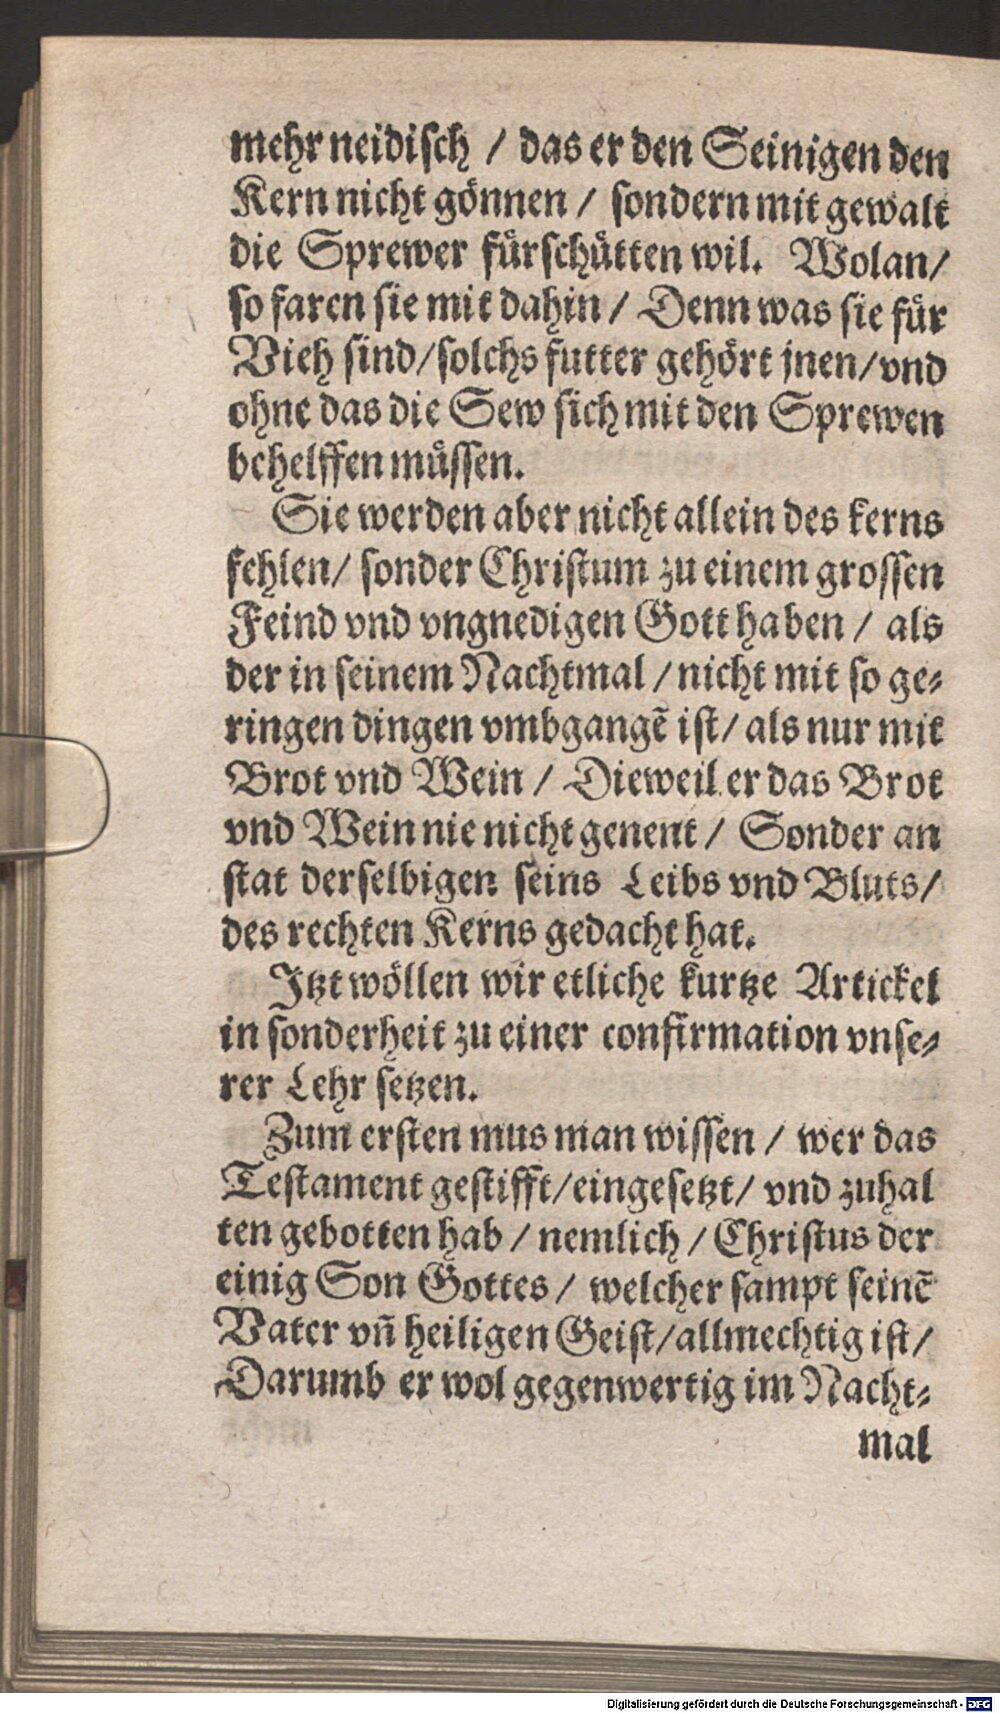 mehr neidisch / das er den Seinigen den
Kern nicht gönnen / sondern mit gewalt
die Sprewer fürschütten wil. Wolan/
so faren sie mit dahin / Denn was sie für
Vieh sind/solchs futter gehört jnen/vnd
ohne das die Sew sich mit den Sprewen
behelffen müssen.
Sie werden aber nicht allein des kerns
fehlen/ sonder Christum zu einem grossen
Feind vnd vngnedigen Gott haben / als
der in seinem Nachtmal / nicht mit so ge-
ringen dingen vmbgangẽ ist/ als nur mit
Brot vnd Wein / Dieweil er das Brot
vnd Wein nie nicht genent / Sonder an
stat derselbigen seins Leibs vnd Bluts/
des rechten Kerns gedacht hat.
Jtzt wöllen wir etliche kurtze Artickel
in sonderheit zu einer confirmation vnse-
rer Lehr setzen.
Zum ersten mus man wissen / wer das
Testament gestifft/eingesetzt/ vnd zuhal
ten gebotten hab / nemlich / Christus der
einig Son Gottes / welcher sampt seinẽ
Vater vñ heiligen Geist/allmechtig ist/
Darumb er wol gegenwertig im Nacht-
mal
Digitalisierung gefördert durch die Deutsche Forschungsgemeinschaft - DFG